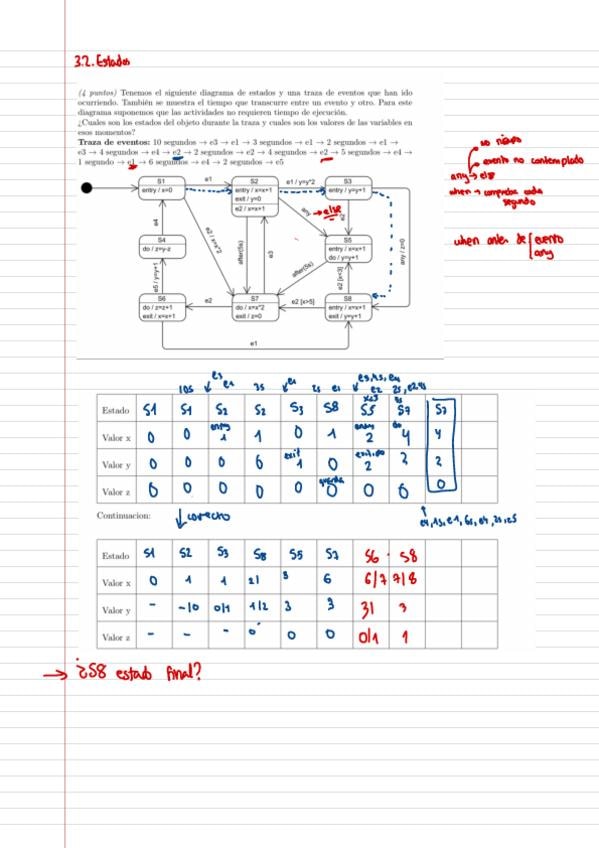 3.2. Estados
(4 puntos) Tenemos el siguiente diagrama de estados y una traza de eventos que han ido
ocurriendo. También se muestra el tiempo que transcurre entre un evento y otro. Para este
diagrama suponemos que las actividades no requieren tiempo de ejecución.
¿Cuales son los estados del objeto durante la traza y cuales son los valores de las variables en
esos momentos?
Traza de eventos: 10 segundos → e3 → e1 → 3 segundos → e1 → 2 segundos → e1 →
e3 → 4 segundos → e1 → e2 → 2 segundos → e2 → 4 segundos → e2 → 5 segundos → e4 →
1 segundo → e1 → 6 segundos → e4 → 2 segundos → e5
evento no contemplado
any → else
when → comprueba cada
segundo
when antes de evento
any
S1
entry / x=0
e1
S2
entry / x=x+1
exit / y=0
e2 / x=x+1
e1 / y=y*2
S3
entry / y=y+1
any
→ else
e2
any / z=0
e4
e2 / x=x*2
after(5s)
e3
S4
do / z=y-z
S5
entry / x=x+1
do / y=y+1
after(5s)
e5 / y=y+1
e2 [x<3]
S6
do / z=z+1
exit / x=x+1
e2
S7
do / x=x*2
exit / z=0
e2 [x>5]
S8
entry / x=x+1
exit / y=y+1
e1
10s e3 e1 3s e1 2s e1 e3, 4s, e1 e2
Estado S1 S1 S2 S2 S3 S8 S5 S7 S7
Valor x 0 0 entry 1 1 0 1 entry 2 do 4 4
Valor y 0 0 0 0 exit 1 0 exit, do 2 2 2
Valor z 0 0 0 0 0 0 0 0 0
Continuacion: correcto
e4, 1s, e1, 6s, e4, 2s, e5
Estado S1 S2 S3 S8 S5 S7 S6 S8
Valor x 0 1 1 2/ 3 6 6/7 7/8
Valor y - -/0 0/1 1/2 3 3 3/ 3
Valor z - - - 0 0 0 0/1 1
→ ¿S8 estado final?